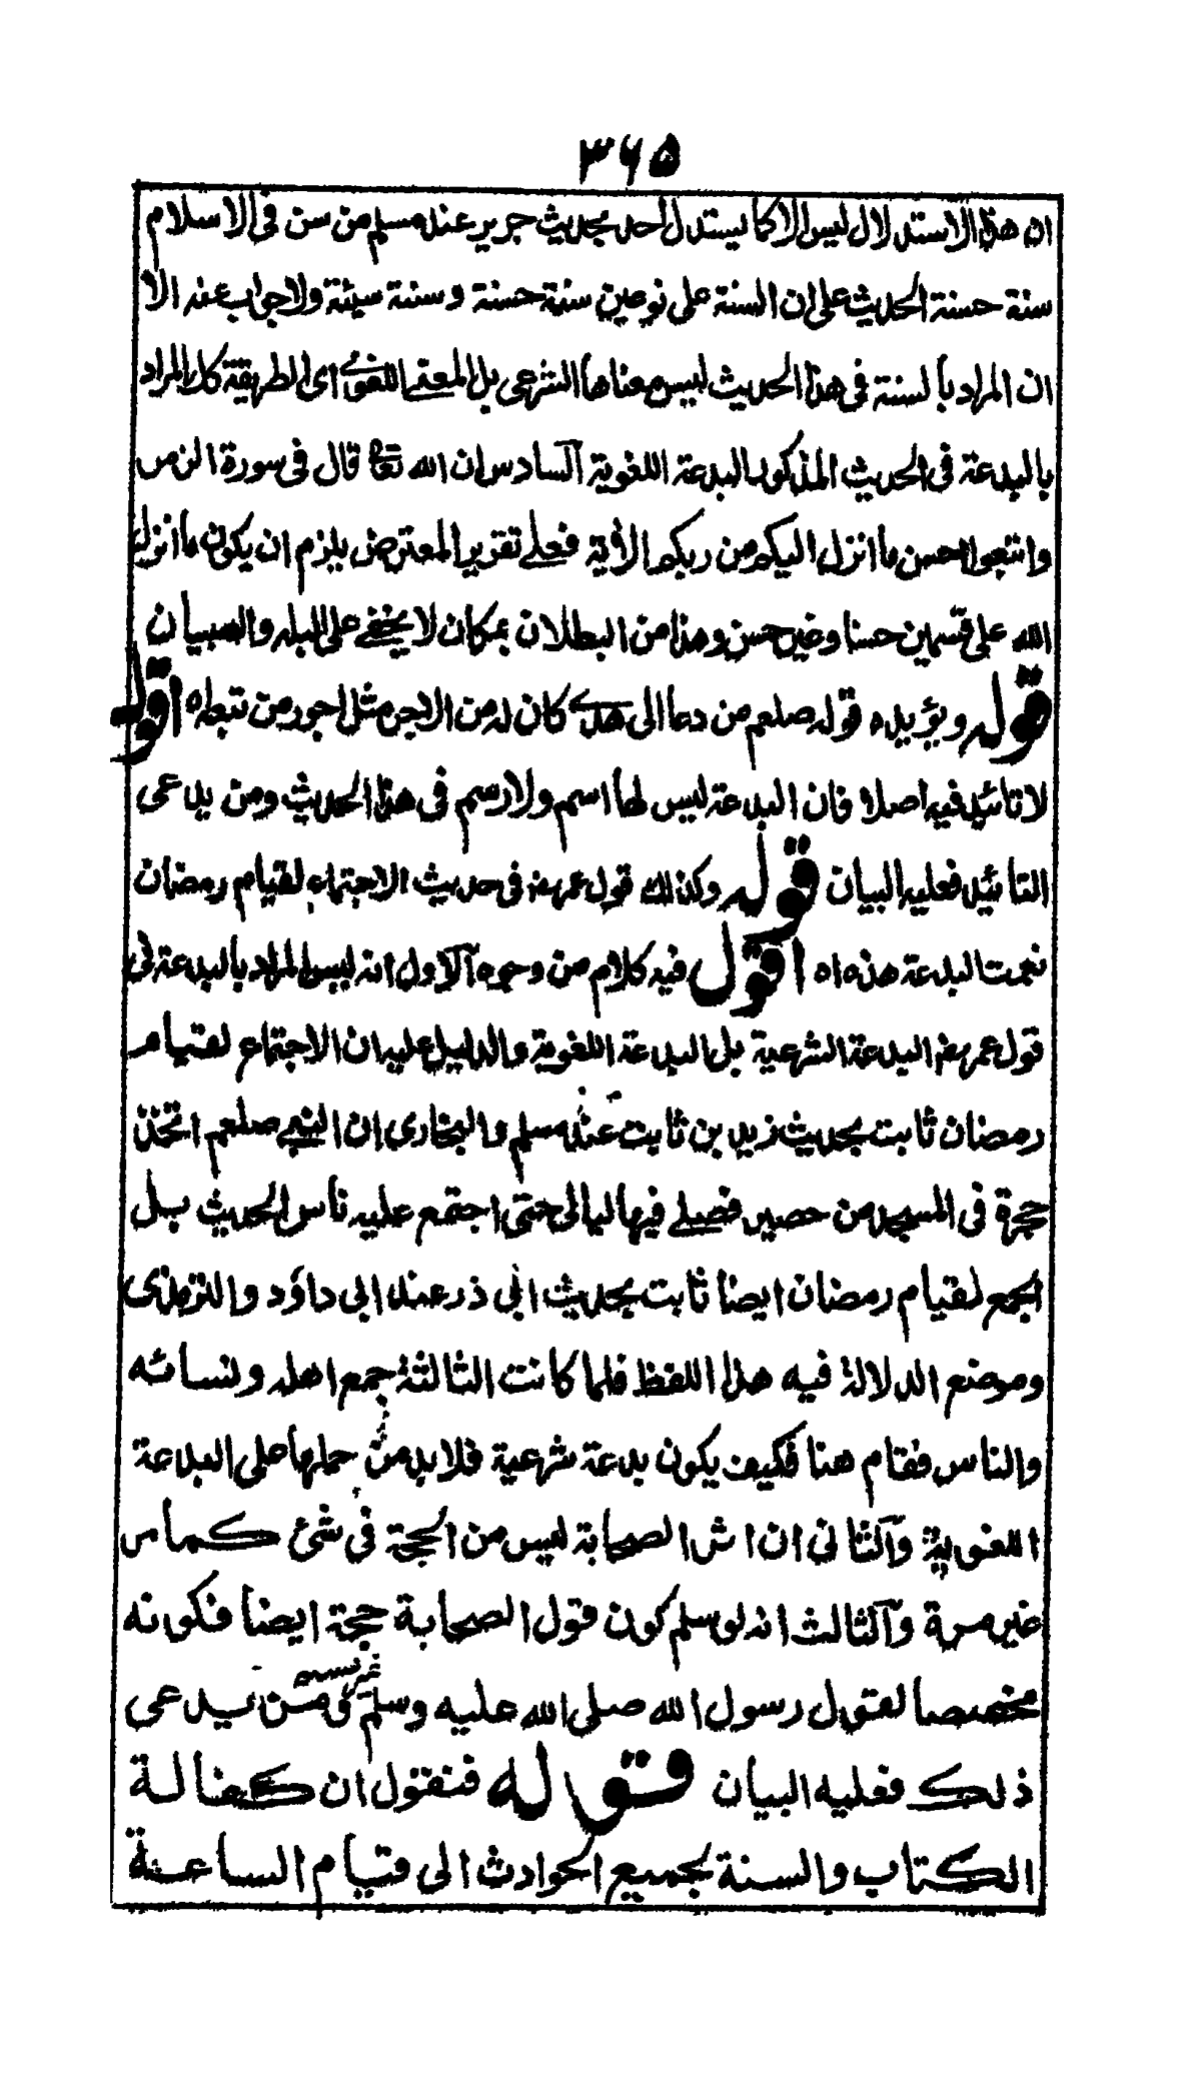 ۳۶۵
ان هذا الاستدلال ليس الا كما يستدل احد بحديث جرير عند مسلم من سن فى الاسلام
سنة حسنة الحديث على ان السنة على نوعين سنة حسنة وسنة سيئة ولا جواب عنه الا
ان المراد بالسنة فى هذا الحديث ليس معناها الشرعى بل المعنى اللغوى اى الطريقة كذا المراد
بالبدعة فى الحديث المذكور البدعة اللغوية السادس ان الله تعالى قال فى سورة الزمر
واتبعوا احسن ما انزل اليكم من ربكم الأية فعلى تقرير المعترض يلزم ان يكون ما انزل
الله على قسمين حسنا وغير حسن وهذا من البطلان بمكان لا يخفى على البله والصبيان
قوله ويؤيده قوله صلعم من دعا الى هدى كان له من الاجر مثل اجور من تبعه اه اقول
لا تائيد فيه اصلا فان البدعة ليس لها اسم ولا رسم فى هذا الحديث ومن يدعى
التائيد فعليه البيان قوله وكذلك قول عمر رض فى حديث الاجتماع لقيام رمضان
نعمت البدعة هذه اه اقول فيه كلام من وجوه الاول انه ليس المراد بالبدعة فى
قول عمر رض البدعة الشرعية بل البدعة اللغوية والدليل عليه ان الاجتماع لقيام
رمضان ثابت بحديث زيد بن ثابت عند مسلم والبخارى ان النبى صلعم اتخذ
حجرة فى المسجد من حصير فصلى فيها ليالى حتى اجتمع عليه ناس الحديث بل
الجمع لقيام رمضان ايضا ثابت بحديث ابى ذر عند ابى داؤد والترمذى
وموضع الدلالة فيه هذا اللفظ فلما كانت الثالثة جمع اهله ونسائه
والناس فقام هنا فكيف يكون بدعة شرعية فلا بد من حملها على البدعة
اللغوية والثانى ان اثر الصحابة ليس من الحجة فى شئ كما مر
غير مرة والثالث انه لو سلم كون قول الصحابة حجة ايضا فكونه
مخصصا لقول رسول الله صلى الله عليه وسلم غير مسلم فمن يدعى
ذلك فعليه البيان قوله فنقول ان كفالة
الكتاب والسنة لجميع الحوادث الى قيام الساعة